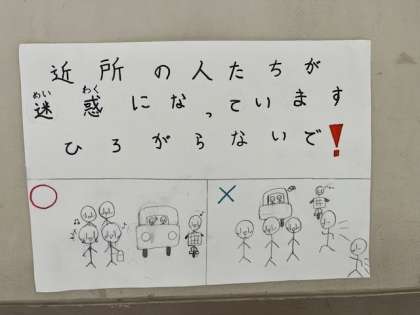 近所の人たちが
迷惑になっています
ひろがらないで!